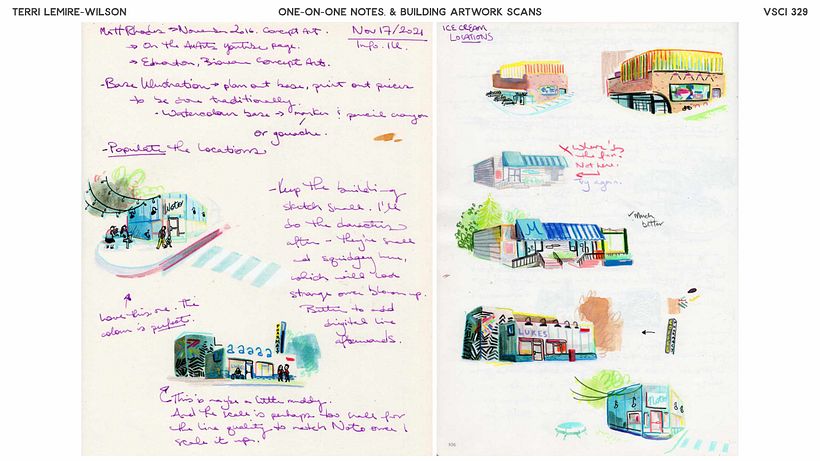 TERRI LEMIRE-WILSON
ONE-ON-ONE NOTES. & BUILDING ARTWORK SCANS
VSCI 329
Matt Rhodes → November 2016. Concept Art.
Nov 17/2021
Info. Ill.
→ On the YouTube page.
→ Edmonton, Bioware Concept Art.
- Base Illustration → plan out base, print out pieces
to be done traditionally.
- Watercolour base → marker & pencil crayon
or gouache.
- Populate the locations
Noto
- Keep the building
sketch small. I'll
do the characters
after - they're small
and squidgey here,
which will look
strange over blown up.
Better to add
digital line
afterwards.
Love this one. The
colour is perfect.
This is maybe a little muddy.
And the scale is perhaps too small for
the line quality to match Noto over I
scale it up.
ICE CREAM
LOCATIONS
X Where's
the fun.
Not here.
Try again.
✓ Much
better
M
LUKES
Noto
106